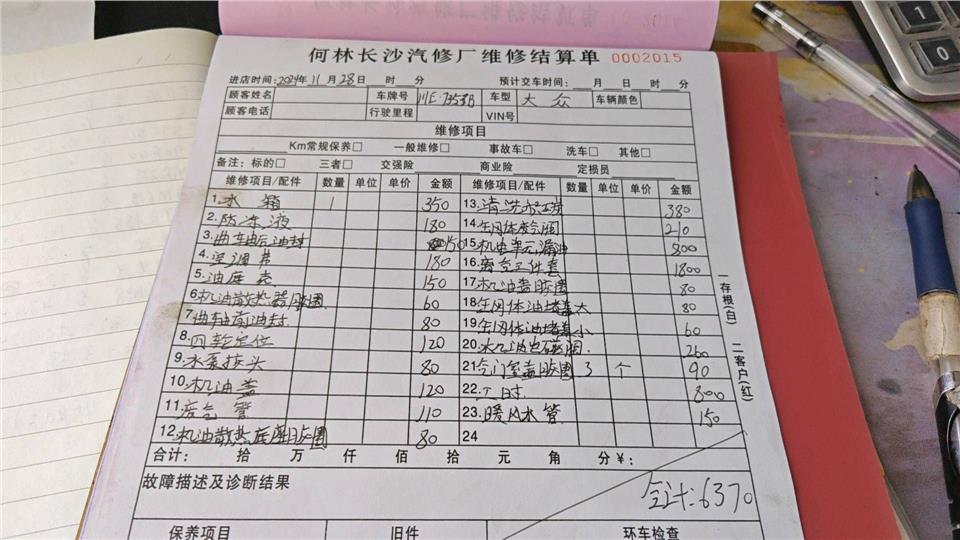 何林长沙汽修厂维修结算单 0002015
进店时间:2024年11月28日 时 分 预计交车时间: 月 日 时 分
顾客姓名 车牌号 川E·7353B 车型 大众 车辆颜色
顾客电话 行驶里程 VIN号
维修项目
Km常规保养□ 一般维修□ 事故车□ 洗车□ 其他□
备注:标的□ 三者□ 交强险 商业险 定损员
维修项目/配件 数量 单位 单价 金额 维修项目/配件 数量 单位 单价 金额
1.水箱 1 350 13.清洗水箱 380
2.防冻液 180 14.缸体 210
3.曲轴后油封 150 15.机虫单元 800
4. 180 16.离合三件套 1800
5.油底壳 150 17.机油盖胶圈 80
6.机油散热器胶圈 60 18.缸体油堵盖大 80
7.曲轴前油封 80 19.缸体油堵盖小 60
8.四轮定位 120 20.机油电磁阀 260
9.水泵接头 80 21.气门室盖胶圈 3 个 90
10.机油盖 120 22.工时 800
11.废气管 110 23.暖风水管 150
12.机油散热底座胶圈 80 24
合计: 拾 万 仟 佰 拾 元 角 分¥:
故障描述及诊断结果
合计:6370
保养项目 旧件 环车检查
一存根(白) 二客户(红)